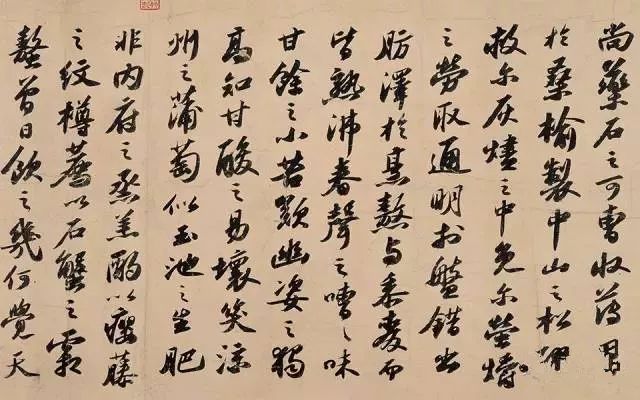 尚藥石之可曹收薄用
於桑榆製中山之松醪
救尔灰燼之中免尔螢爝
之勞取通明於盤錯出
肪澤於烹熬与黍麥而
皆熟沸舂聲之嘈〻味
甘餘之小苦歎幽姿之獨
高知甘酸之易壞笑涼
州之蒲萄似玉池之生肥
非内府之烝羔酌以癭藤
之紋樽薦以石蟹之霜
螯曾日飲之幾何覺天